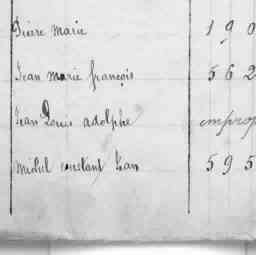 Pierre Marie 190
Jean Marie françois 562
Jean Louis adolphe improp
Michel constant Jean 595